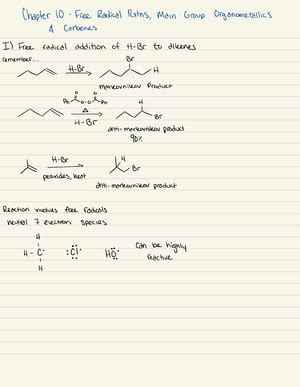 Chapter 10 - Free Radical Rxtns, Main Group Organometallics
& Carbenes
I) Free radical addition of H-Br to alkenes
remember...
H-Br
Br
H
markovnikov Product
Ph O O Ph
O-O
Δ
H-Br
H
Br
anti-markovnikov product
90%
H-Br
peroxides, heat
H
Br
anti-markovnikov product
Reaction involves free radicals
neutral 7 electron species
H
H - C·
H
:Cl·
HO·
Can be highly
reactive